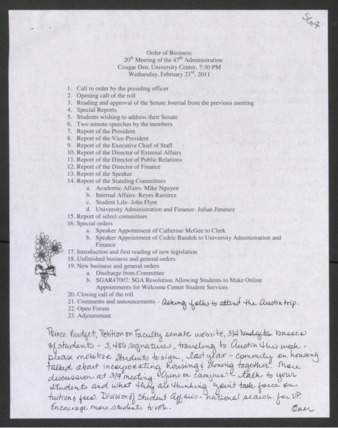 Order of Business
20th Meeting of the 47th Administration
Cougar Den, University Center, 7:30 PM
Wednesday, February 23rd, 2011
1. Call to order by the presiding officer
2. Opening call of the roll
3. Reading and approval of the Senate Journal from the previous meeting
4. Special Reports
5. Students wishing to address their Senate
6. Two minute speeches by the members
7. Report of the President
8. Report of the Vice-President
9. Report of the Executive Chief of Staff
10. Report of the Director of External Affairs
11. Report of the Director of Public Relations
12. Report of the Director of Finance
13. Report of the Speaker
14. Report of the Standing Committees
a. Academic Affairs- Mike Nguyen
b. Internal Affairs- Reyes Ramirez
c. Student Life- John Flynt
d. University Administration and Finance- Julian Jimenez
15. Report of select committees
16. Special orders
a. Speaker Appointment of Catherine McGee to Clerk
b. Speaker Appointment of Cedric Bandoh to University Administration and
Finance
17. Introduction and first reading of new legislation
18. Unfinished business and general orders
19. New business and general orders
a. Discharge from Committee
b. SGAR47007: SGA Resolution Allowing Students to Make Online
Appointments for Welcome Center Student Services
20. Closing call of the roll
21. Comments and announcements - Asking folks to attend the Austin trip.
22. Open Forum
23. Adjournment
Budget, Petition on Faculty senate website,
of students - signatures, traveling to Austin this week -
please mobilize students to sign, last year - community on housing
talked about incorporating housing & dining together. More
discussion at 3/9 meeting. Guns on campus - talk to your
students and what they are thinking, joint task force on
tuition & fees. Division of Student Affairs - national search for VP.
Encourage more students to vote.
Over